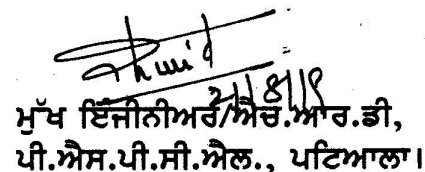 21/8/18
ਮੁੱਖ ਇੰਜੀਨੀਅਰ/ਐਚ.ਆਰ.ਡੀ,
ਪੀ.ਐਸ.ਪੀ.ਸੀ.ਐਲ., ਪਟਿਆਲਾ।